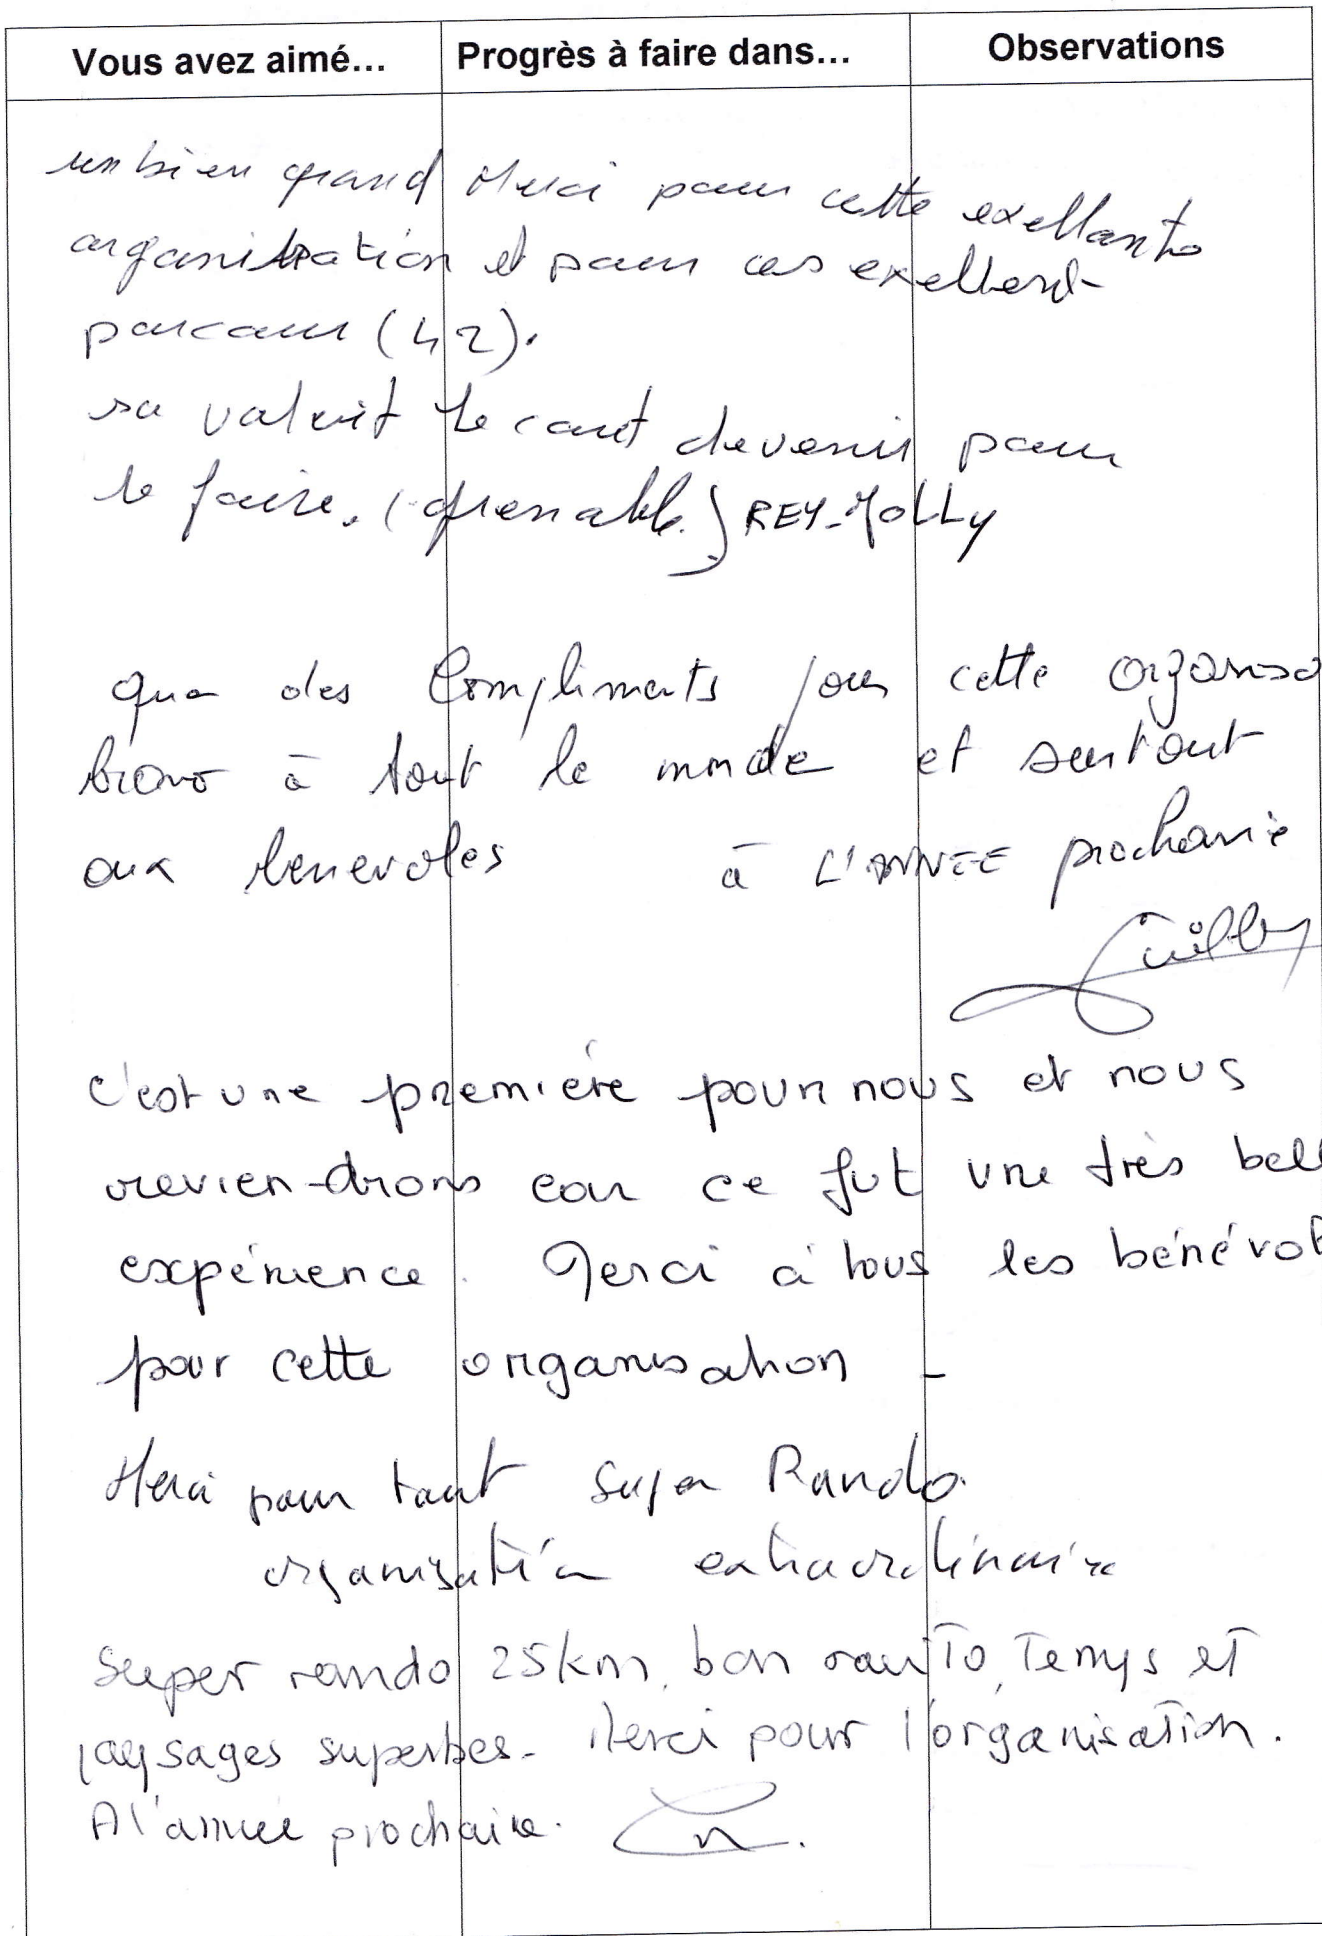 Vous avez aimé... Progrès à faire dans... Observations
un bien grand Merci pour cette exellante
organisation et pour ces exellent
parcour (42).
sa valait le cout de venir pour
le faire. (Grenoble) REY-MOLLY
que des Compliments pour cette organisa
bravo à tout le monde et surtout
aux benevoles à L'ANNEE prochaine
C'est une première pour nous et nous
reviendrons car ce fut une très bell
expérience. Merci à tous les bénévol
pour cette organisation -
Merci pour tout super Rando.
organisation extraordinaire
Super rando 25km, bon ravito, Temps et
paysages superbes - Merci pour l'organisation.
A l'année prochaine.